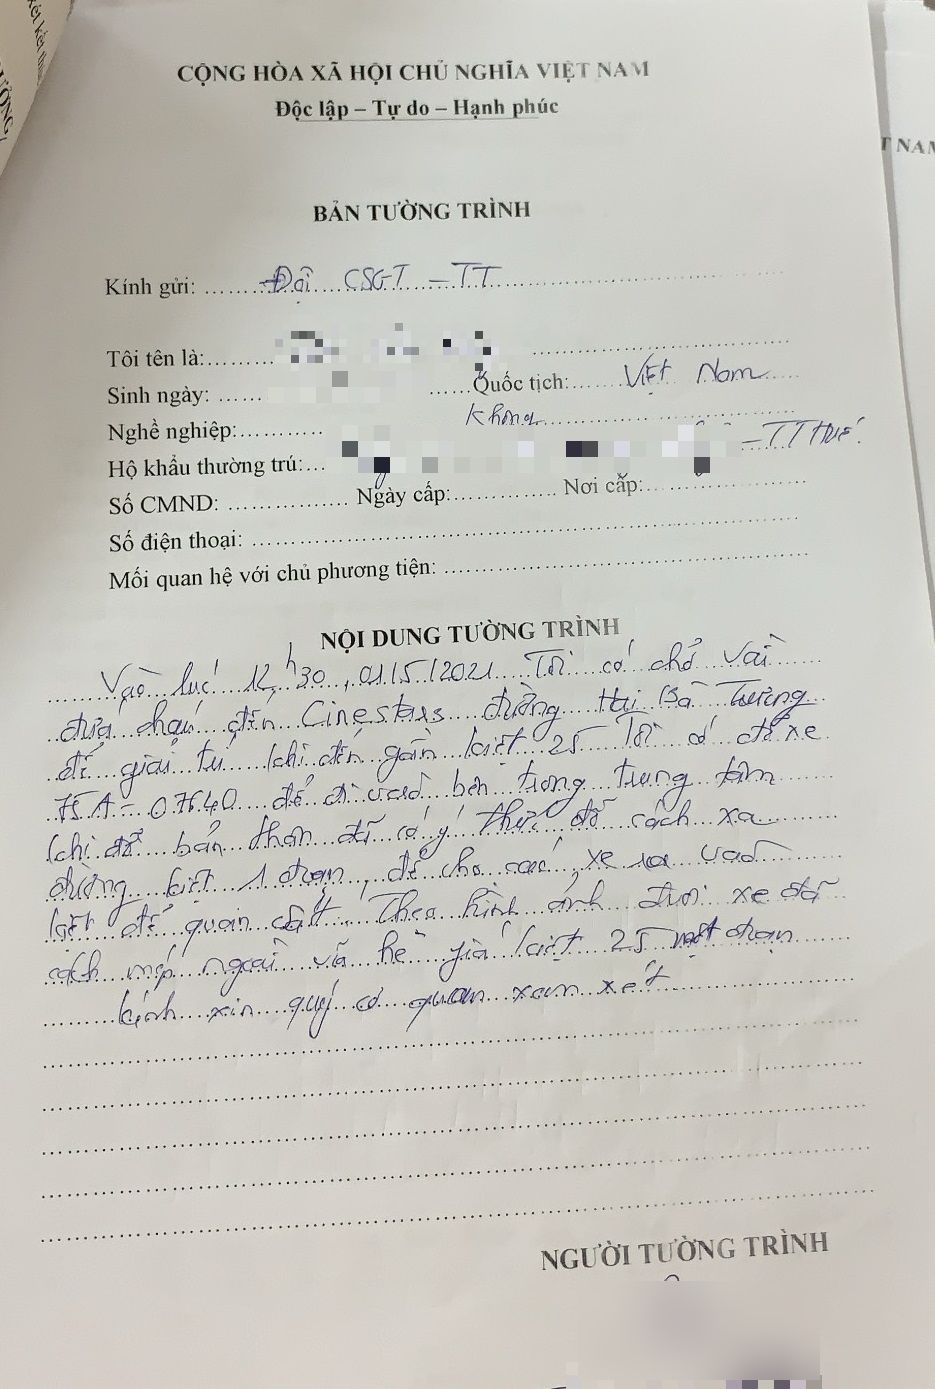 CỘNG HÒA XÃ HỘI CHỦ NGHĨA VIỆT NAM
Độc lập – Tự do – Hạnh phúc
T NAM
BẢN TƯỜNG TRÌNH
Kính gửi: Đội CSGT – TT
Tôi tên là:
Sinh ngày: Quốc tịch: Việt Nam
Nghề nghiệp: không
Hộ khẩu thường trú: – TT Huế.
Số CMND: Ngày cấp: Nơi cấp:
Số điện thoại:
Mối quan hệ với chủ phương tiện:
NỘI DUNG TƯỜNG TRÌNH
Vào lúc 12h30, 01/5/2021 Tôi có chở vài
đứa cháu đến Cinestars đường Hai Bà Trưng
để giải trí khi đến gần kiệt 25 Tôi có để xe
75A-07640 để đi vào bên trong trung tâm
khi đỗ bản thân đã có ý thức đỗ cách xa
đường kiệt 1 đoạn, để cho các xe ra vào
kiệt để quan sát. Theo hình ảnh đuôi xe đã
cách mép ngoài vỉa hè kiệt 25 một đoạn
kính xin quý cơ quan xem xét
NGƯỜI TƯỜNG TRÌNH